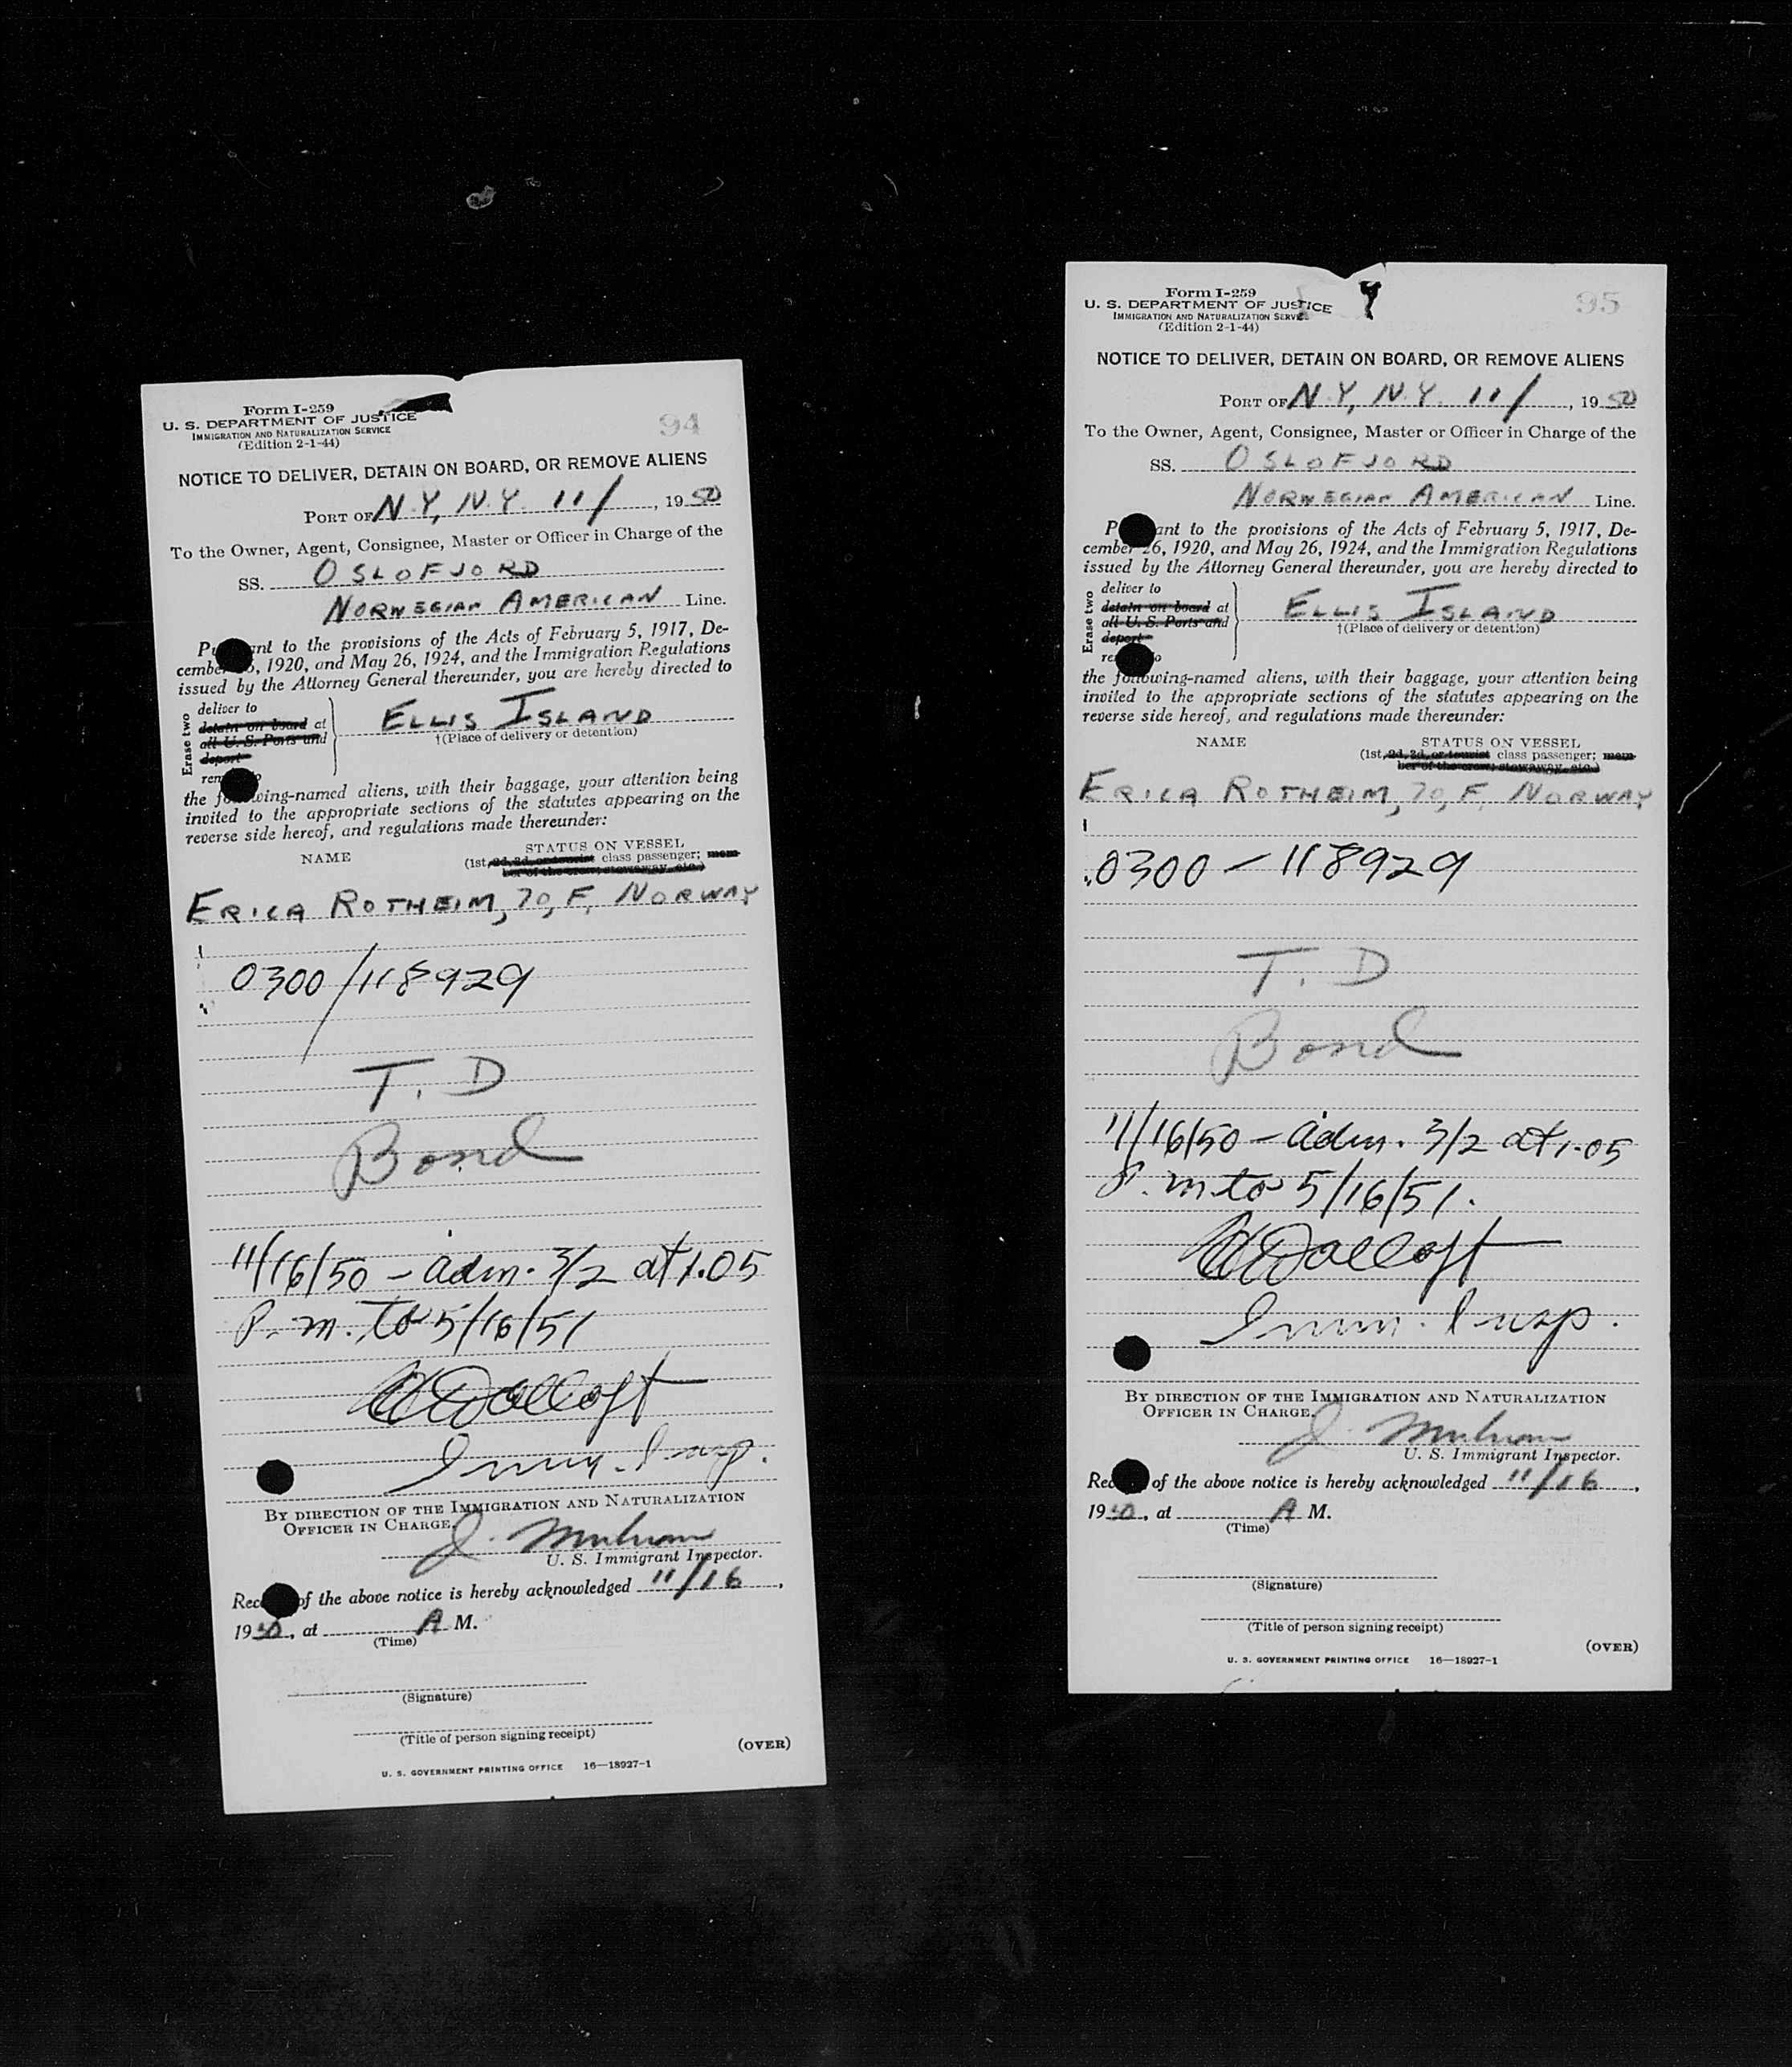 Form I-259
U. S. DEPARTMENT OF JUSTICE
IMMIGRATION AND NATURALIZATION SERVICE
(Edition 2-1-44)
94
NOTICE TO DELIVER, DETAIN ON BOARD, OR REMOVE ALIENS
PORT OF N.Y, N.Y. 11/, 1950
To the Owner, Agent, Consignee, Master or Officer in Charge of the
SS. OSLOFJORD
NORWEGIAN AMERICAN Line.
Pu ant to the provisions of the Acts of February 5, 1917, De-
cember 26, 1920, and May 26, 1924, and the Immigration Regulations
issued by the Attorney General thereunder, you are hereby directed to
Erase two
deliver to
detain on board at
all U. S. Ports and
deport
rem o
ELLIS ISLAND
†(Place of delivery or detention)
the following-named aliens, with their baggage, your attention being
invited to the appropriate sections of the statutes appearing on the
reverse side hereof, and regulations made thereunder:
NAME STATUS ON VESSEL
(1st, 2d, 3d, or tourist class passenger; mem-
ber of the crew; stowaway, etc.)
ERICA ROTHEIM, 70, F, NORWAY
0300/118929
T. D
Bond
11/16/50 - adm. 3/2 at 1.05
P. m. to 5/16/51
Imm. Insp.
BY DIRECTION OF THE IMMIGRATION AND NATURALIZATION
OFFICER IN CHARGE.
J.
U. S. Immigrant Inspector.
Rec of the above notice is hereby acknowledged 11/16,
1950, at A M.
(Time)
(Signature)
(Title of person signing receipt)
(OVER)
U. S. GOVERNMENT PRINTING OFFICE 16—18927-1
Form I-259
U. S. DEPARTMENT OF JUSTICE
IMMIGRATION AND NATURALIZATION SERVICE
(Edition 2-1-44)
95
NOTICE TO DELIVER, DETAIN ON BOARD, OR REMOVE ALIENS
PORT OF N.Y, N.Y. 11/, 1950
To the Owner, Agent, Consignee, Master or Officer in Charge of the
SS. OSLOFJORD
NORWEGIAN AMERICAN Line.
P ant to the provisions of the Acts of February 5, 1917, De-
cember 26, 1920, and May 26, 1924, and the Immigration Regulations
issued by the Attorney General thereunder, you are hereby directed to
Erase two
deliver to
detain on board at
all U. S. Ports and
deport
re o
ELLIS ISLAND
†(Place of delivery or detention)
the following-named aliens, with their baggage, your attention being
invited to the appropriate sections of the statutes appearing on the
reverse side hereof, and regulations made thereunder:
NAME STATUS ON VESSEL
(1st, 2d, 3d, or tourist class passenger; mem-
ber of the crew; stowaway, etc.)
ERICA ROTHEIM, 70, F, NORWAY
0300 - 118929
T. D
Bond
11/16/50 - adm. 3/2 at 1.05
P. m to 5/16/51.
Imm. Insp.
BY DIRECTION OF THE IMMIGRATION AND NATURALIZATION
OFFICER IN CHARGE.
J.
U. S. Immigrant Inspector.
Rec of the above notice is hereby acknowledged 11/16,
1950, at A M.
(Time)
(Signature)
(Title of person signing receipt)
(OVER)
U. S. GOVERNMENT PRINTING OFFICE 16—18927-1